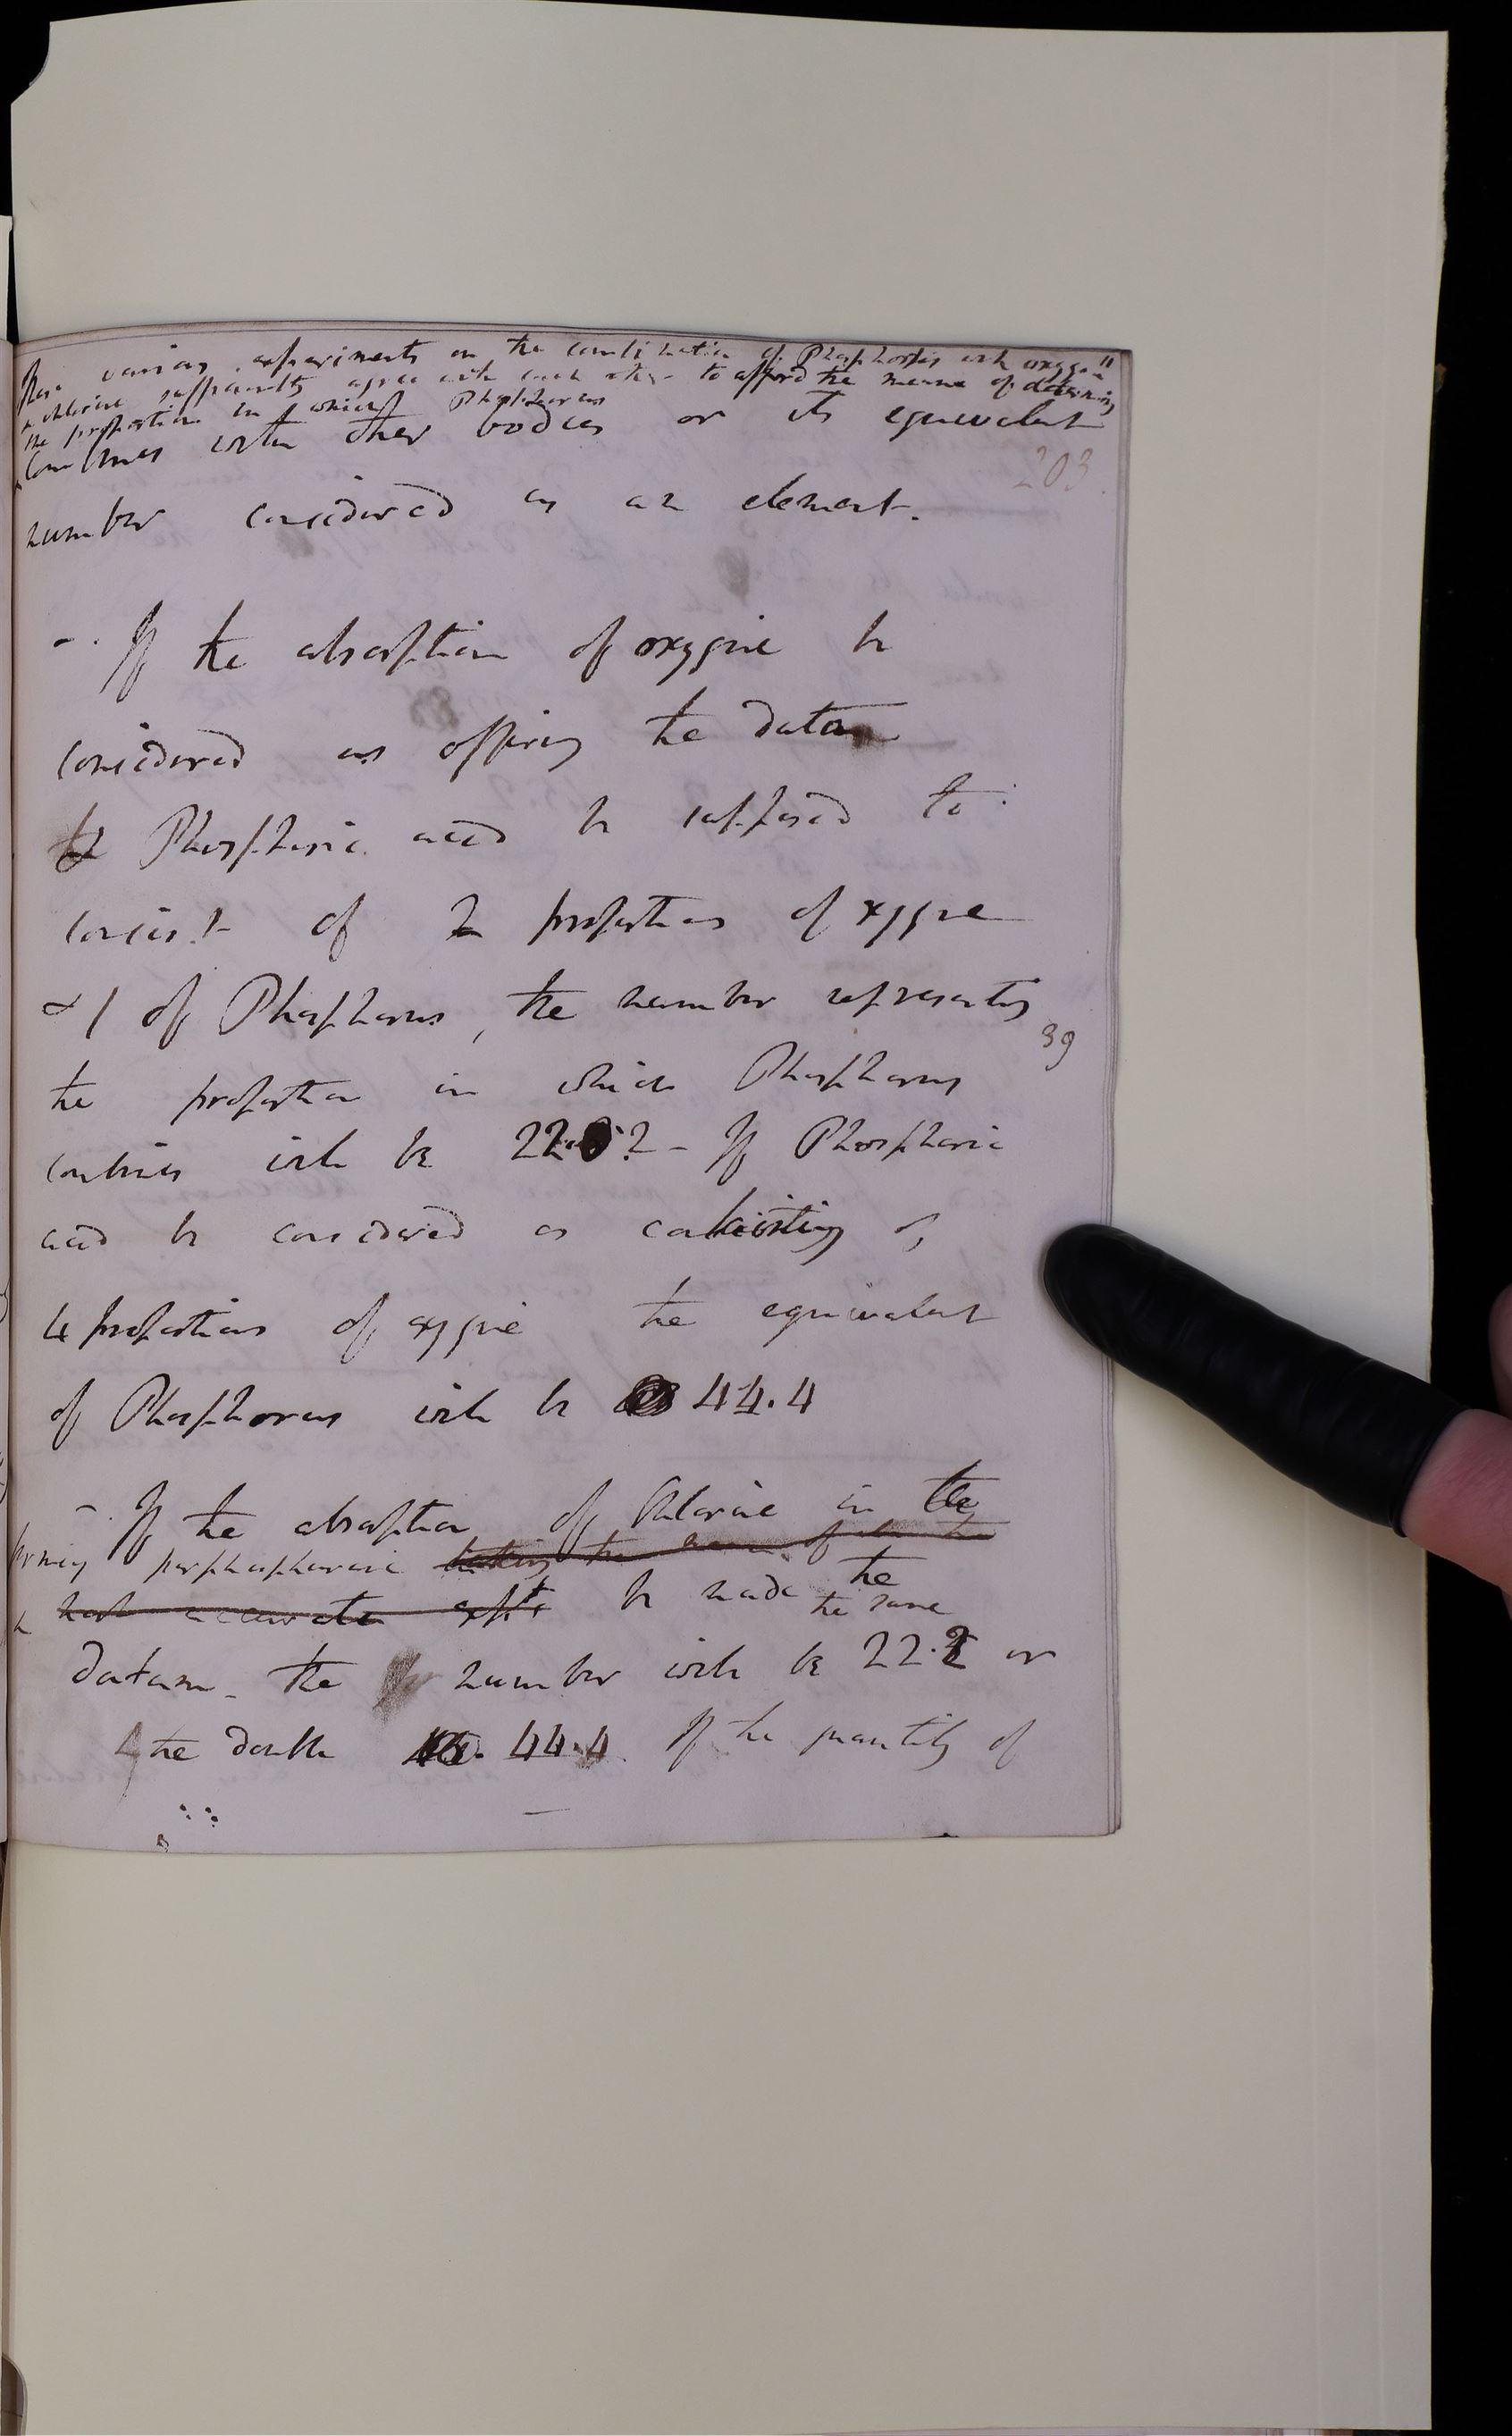 These various experiments on the combination of Phosphorus with oxygen
& chlorine sufficiently agree with each other to afford the means of determining
the proportion in which Phosphorus
combines with other bodies or its equivalent
203
number considered as an element.
- If the absorption of oxygene be
considered as offering the data
& Phosphoric acid be supposed to
consist of 2 proportions of oxygene
& 1 of Phosphorus, the number representing
39
the proportion in which Phosphorus
combines will be 22.2 - If Phosphoric
acid be considered as consisting of
4 proportions of oxygene the equivalent
of Phosphorus will be 44.4
- If the absorption of Chlorine in the
forming perphosphorane taking the
most accurate expts be made the
the same
datum - the number will be 22.2 or
the double 44.4 If the quantity of